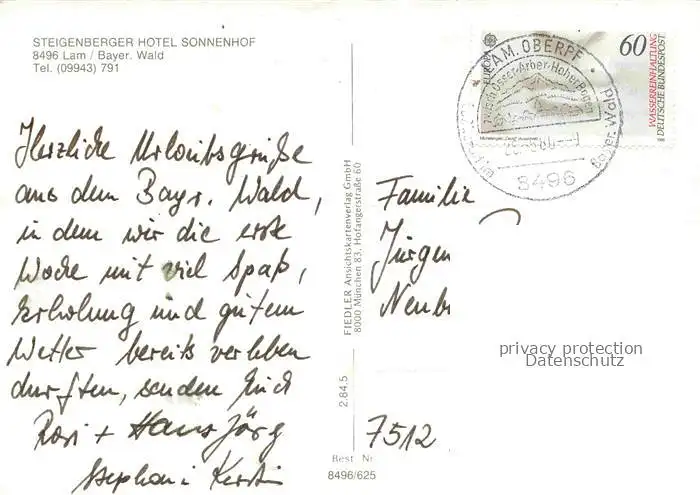 STEIGENBERGER HOTEL SONNENHOF
8496 Lam / Bayer. Wald
Tel. (09943) 791
Herzliche Urlaubsgrüße
aus dem Bayr. Wald,
in dem wir die erste
Woche mit viel Spaß,
Erholung und gutem
Wetter bereits verleben
durften, senden Euch
Rosi + Hans Jörg
Stephani Kerstin
FIEDLER Ansichtskartenverlag GmbH
8000 München 83, Hofangerstraße 60
2.84.5
Best Nr
8496/625
EUROPA
60
WASSERREINHALTUNG
DEUTSCHE BUNDESPOST
LAM, OBERPF
Osser-Arber-Hoher Bogen
Bayer. Wald
8496
Familie
Jürgen
Neub
7512
privacy protection
Datenschutz